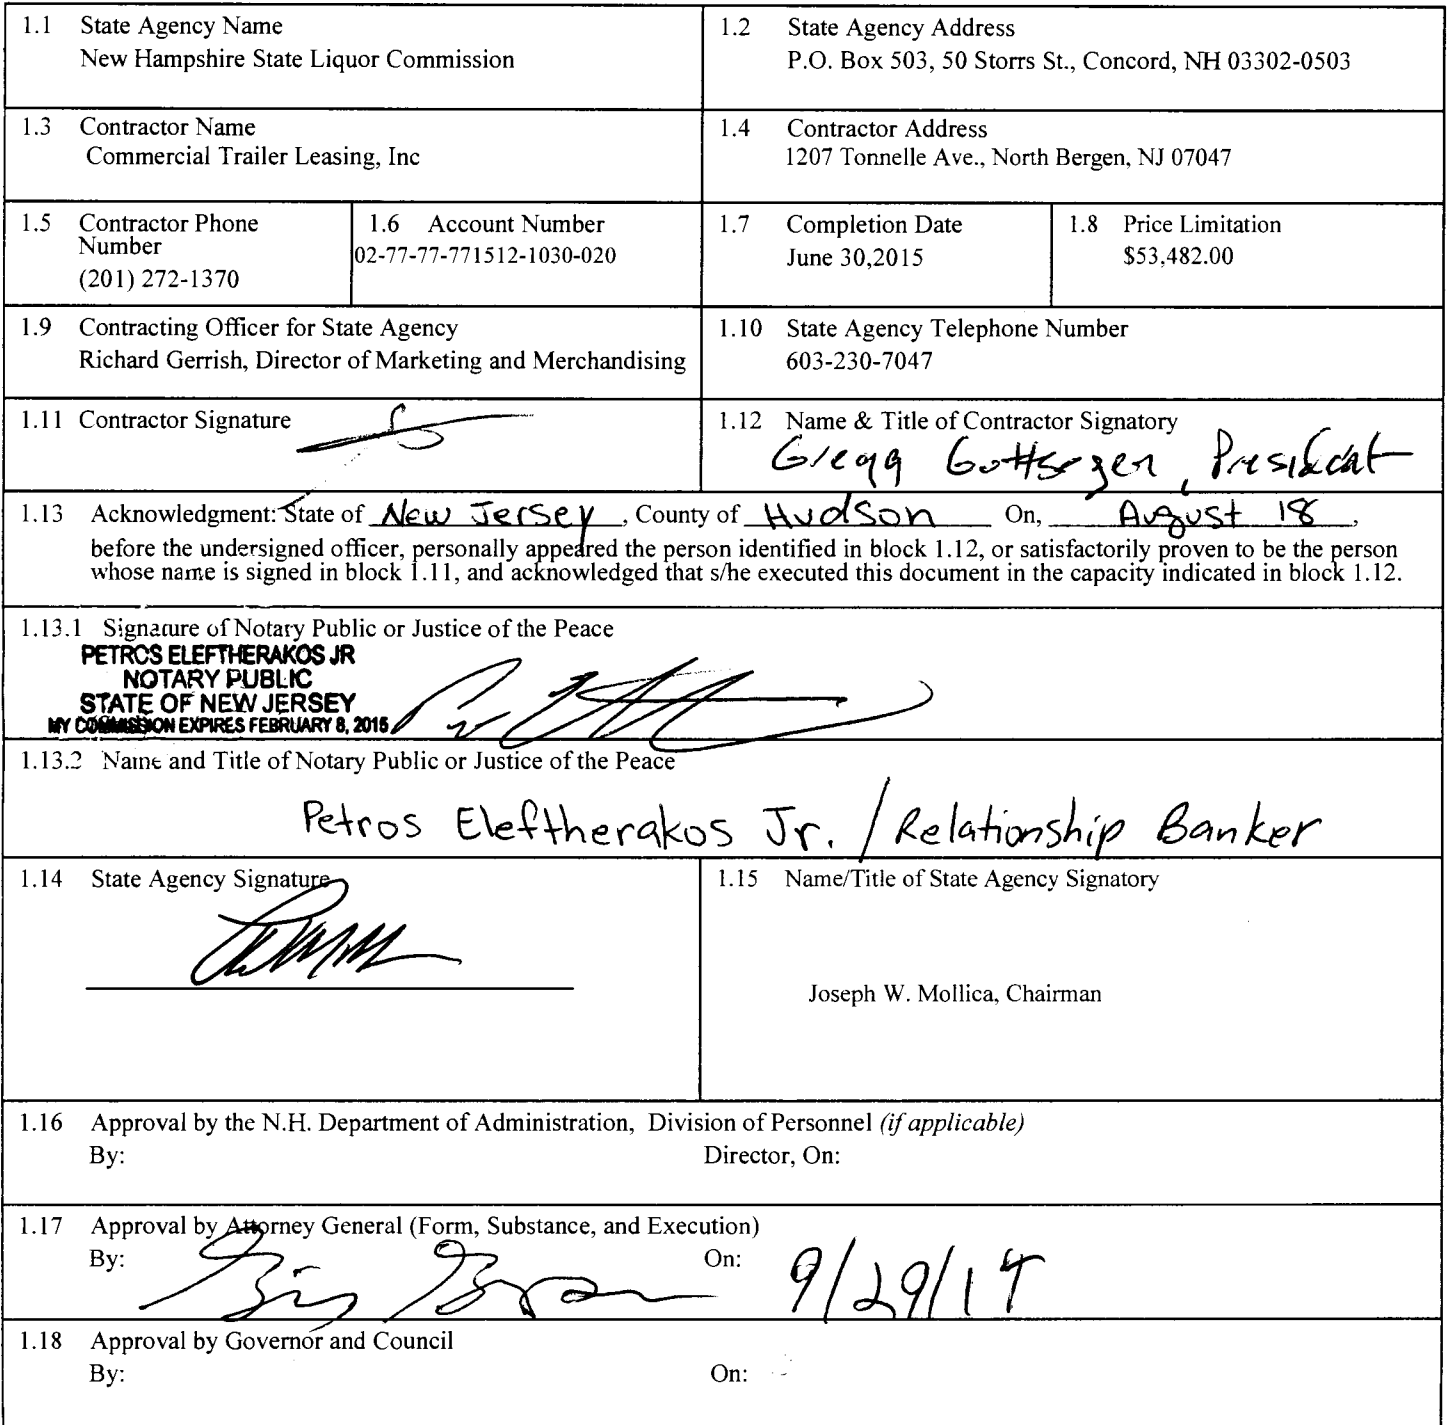 1.1 State Agency Name
New Hampshire State Liquor Commission
1.2 State Agency Address
P.O. Box 503, 50 Storrs St., Concord, NH 03302-0503
1.3 Contractor Name
Commercial Trailer Leasing, Inc
1.4 Contractor Address
1207 Tonnelle Ave., North Bergen, NJ 07047
1.5 Contractor Phone
Number
(201) 272-1370
1.6 Account Number
02-77-77-771512-1030-020
1.7 Completion Date
June 30,2015
1.8 Price Limitation
$53,482.00
1.9 Contracting Officer for State Agency
Richard Gerrish, Director of Marketing and Merchandising
1.10 State Agency Telephone Number
603-230-7047
1.11 Contractor Signature
1.12 Name & Title of Contractor Signatory
Gregg , President
1.13 Acknowledgment: State of New Jersey, County of Hudson On, August 18,
before the undersigned officer, personally appeared the person identified in block 1.12, or satisfactorily proven to be the person
whose name is signed in block 1.11, and acknowledged that s/he executed this document in the capacity indicated in block 1.12.
1.13.1 Signature of Notary Public or Justice of the Peace
PETROS ELEFTHERAKOS JR
NOTARY PUBLIC
STATE OF NEW JERSEY
MY COMMISSION EXPIRES FEBRUARY 8,
1.13.2 Name and Title of Notary Public or Justice of the Peace
Petros Eleftherakos Jr. / Relationship Banker
1.14 State Agency Signature
1.15 Name/Title of State Agency Signatory
Joseph W. Mollica, Chairman
1.16 Approval by the N.H. Department of Administration, Division of Personnel (if applicable)
By: Director, On:
1.17 Approval by Attorney General (Form, Substance, and Execution)
By: On: 9/29/14
1.18 Approval by Governor and Council
By: On: